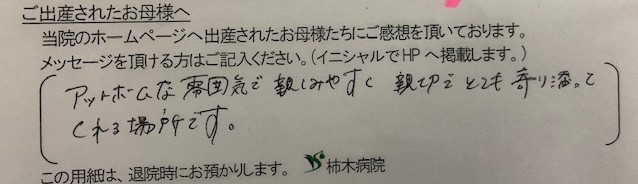 ご出産されたお母様へ
当院のホームページへ出産されたお母様たちにご感想を頂いております。
メッセージを頂ける方はご記入ください。(イニシャルでHPへ掲載します。)
アットホームな雰囲気で親しみやすく親切でとても寄り添って
くれる場所です。
この用紙は、退院時にお預かりします。 柿木病院